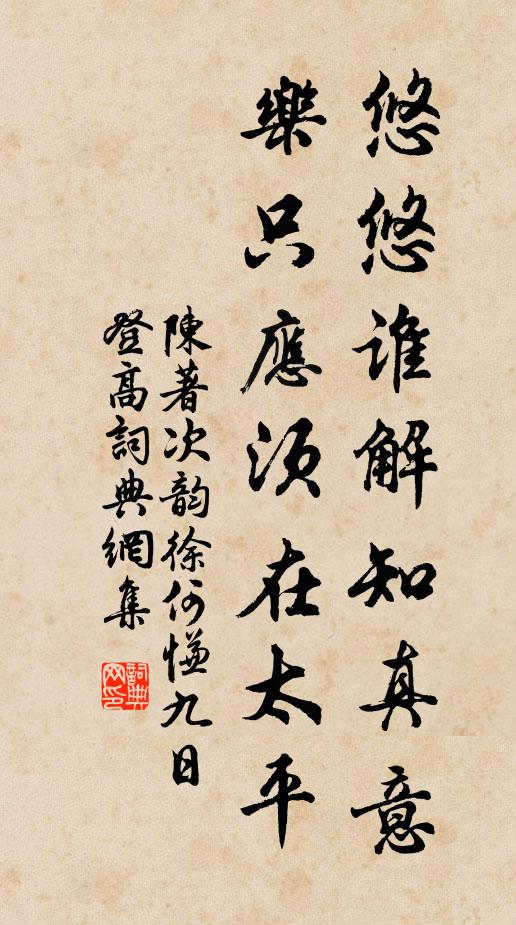 悠悠誰解知真意
樂只應須在太平
陳著次韵徐何慥九日
登高詞典網集
詞典网印